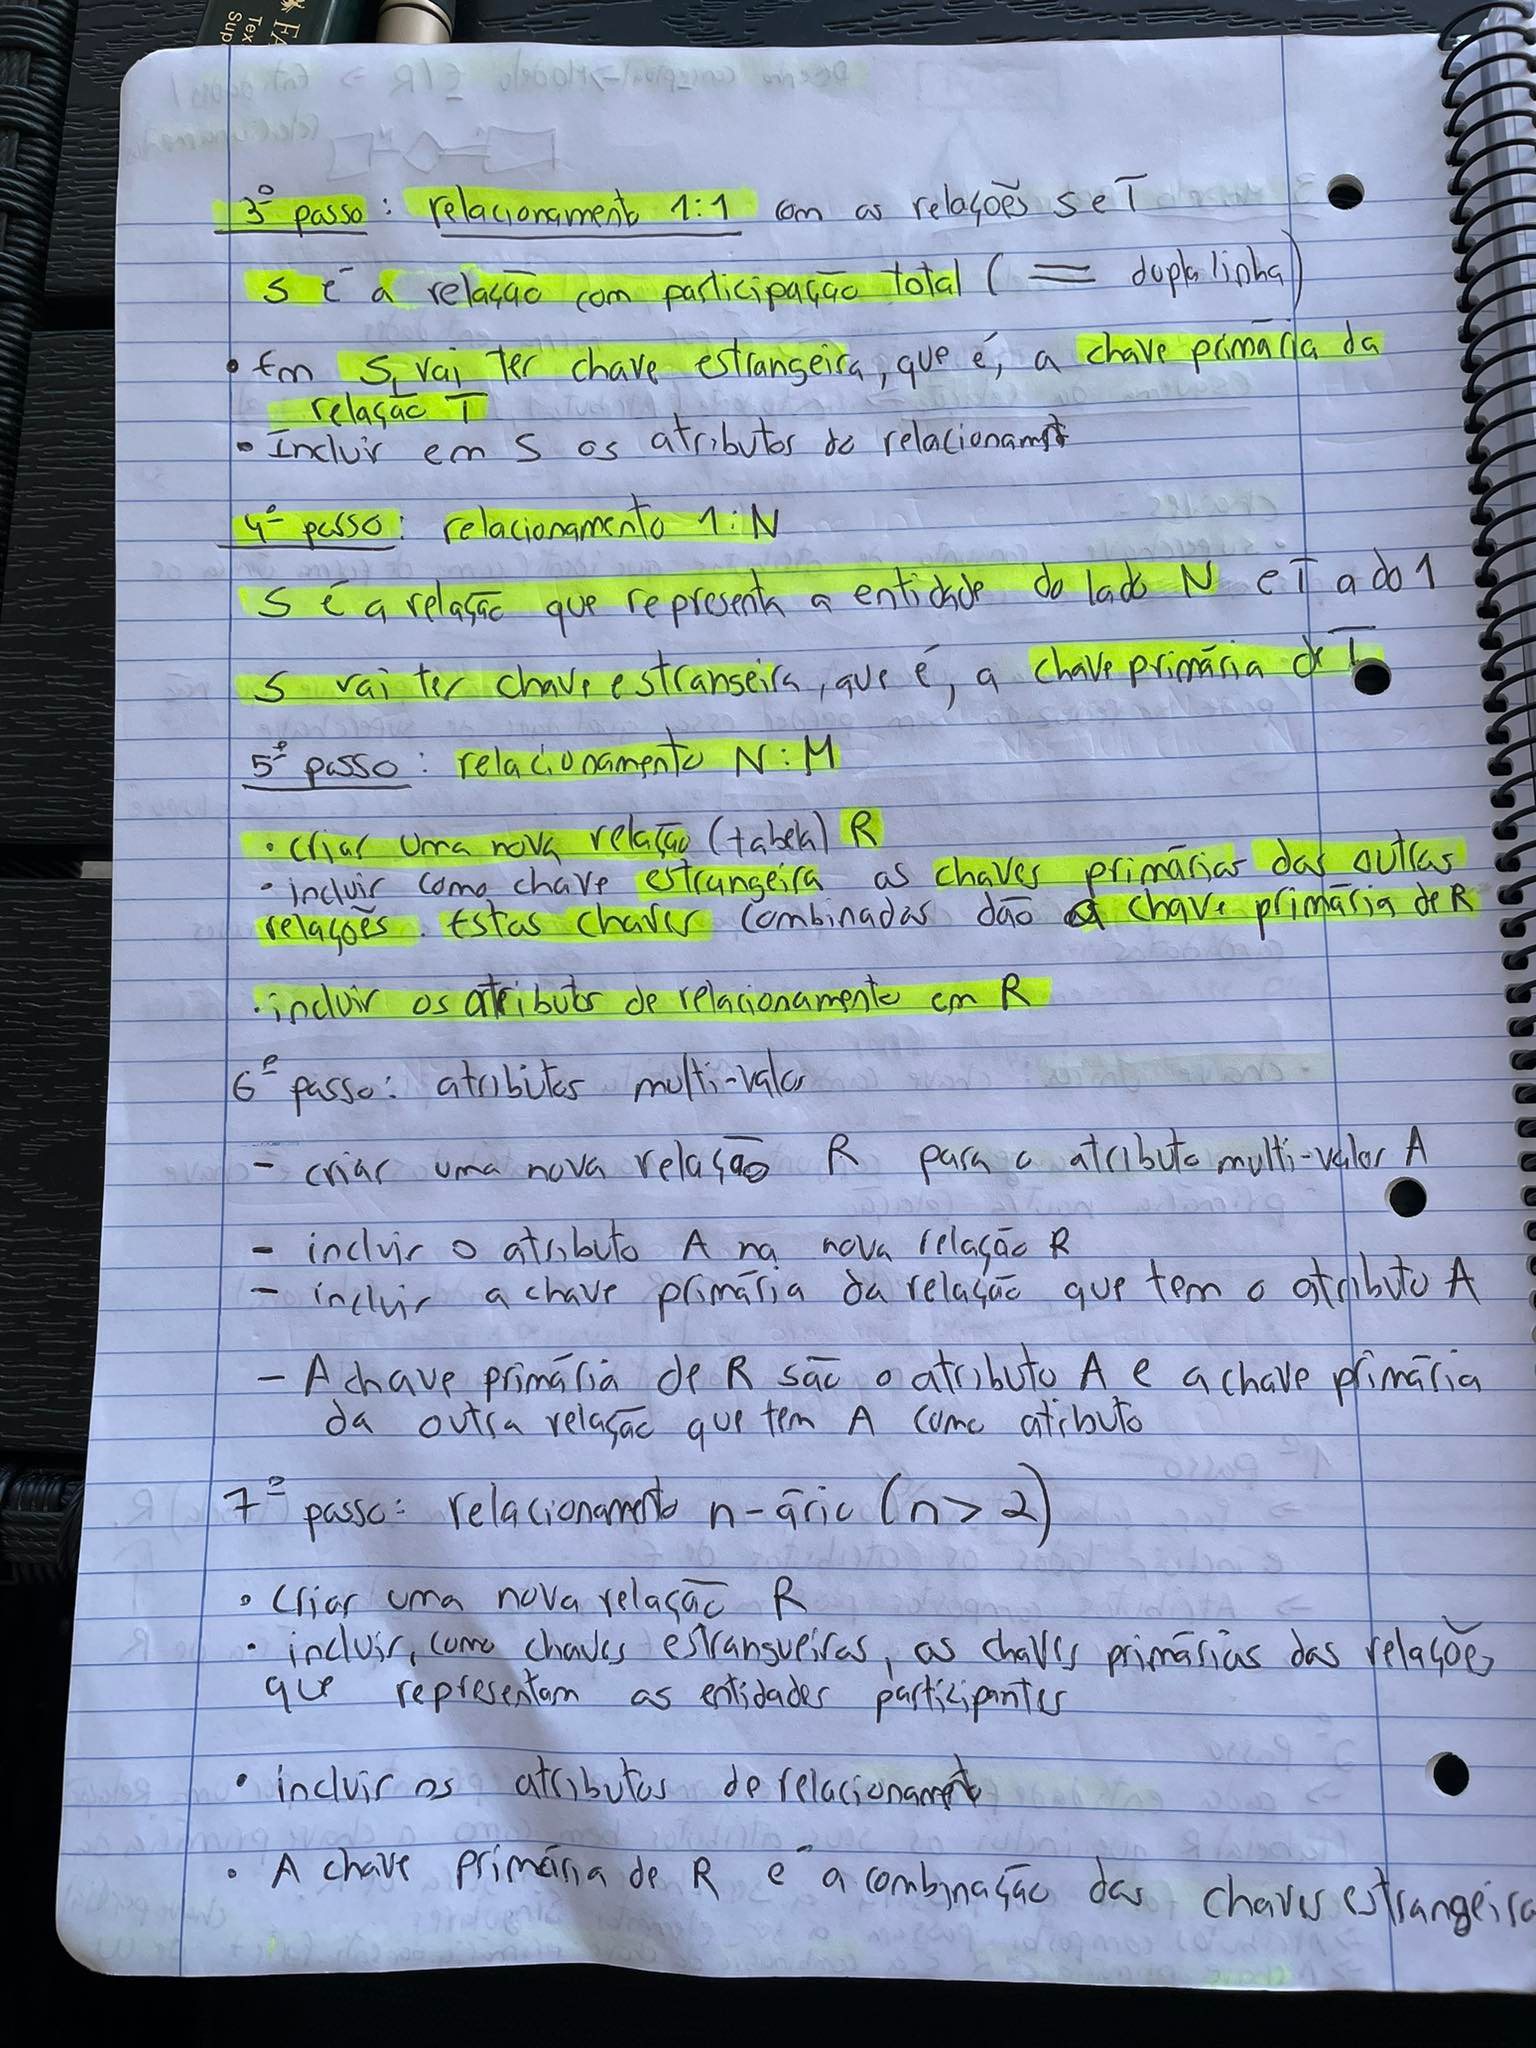 FA
Tex
Sup
3º passo: relacionamento 1:1 com as relações S e T
S é a relação com participação total ( = dupla linha)
• Em S, vai ter chave estrangeira, que é, a chave primária da
relação T
• Incluir em S os atributos do relacionamto
4º passo: relacionamento 1:N
S é a relação que representa a entidade do lado N e T a do 1
S vai ter chave estranseira, que é, a chave primária de T
5º passo: relacionamento N:M
• criar uma nova relação (tabela) R
• incluir como chave estrangeira as chaves primárias das outras
relações. Estas chaves combinadas dão a chave primária de R
• incluir os atributos de relacionamento em R
6º passo: atributos multi-valor
- criar uma nova relação R para o atributo multi-valor A
- incluir o atributo A na nova relação R
- incluir a chave primária da relação que tem o atributo A
- A chave primária de R são o atributo A e a chave primária
da outra relação que tem A como atibuto
7º passo: relacionamento n-ário (n > 2)
• Criar uma nova relação R
• incluir, como chaves estrangueiras, as chaves primárias das relações
que representam as entidades participantes
• incluir os atributos de relacionamto
• A chave primária de R é a combinação das chaves estrangeira